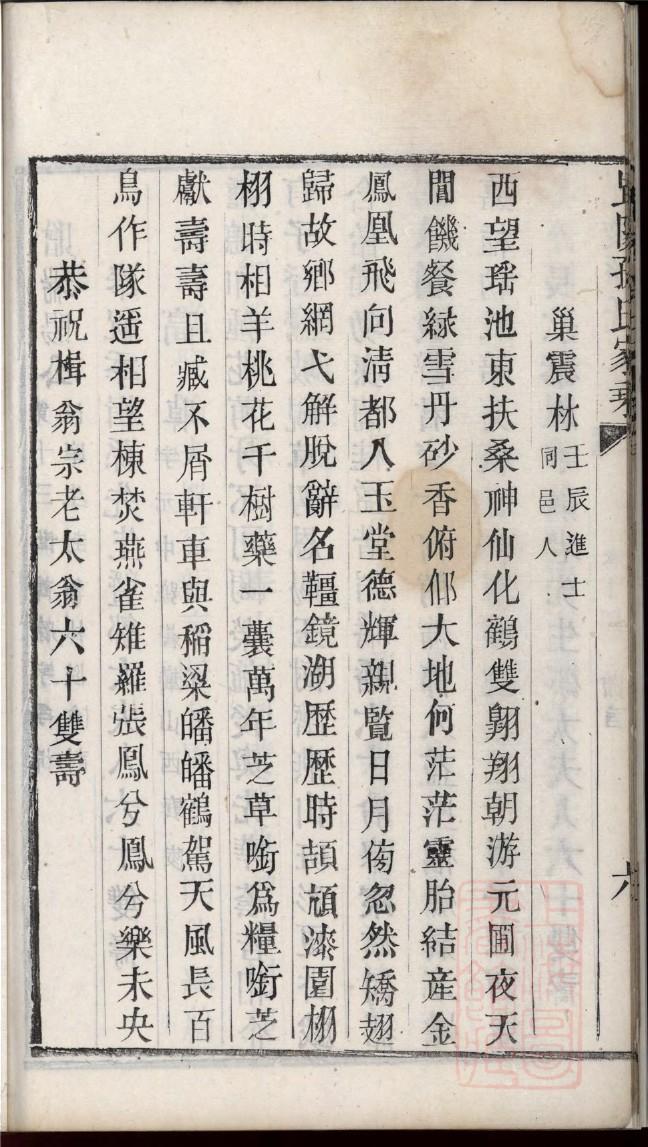 孫氏家乘
六
巢震林 壬辰進士 同邑人
西望瑶池東扶桑神仙化鶴雙翺翔朝游元圃夜天
間饑餐緑雪丹砂香俯仰大地何茫茫靈胎結産金
鳳凰飛向淸都入玉堂德輝親覧日月傍忽然矯翅
歸故鄉網弋解脫辭名韁鏡湖歷歷時頡頏漆園栩
栩時相羊桃花千樹藥一囊萬年芝草啣爲糧啣芝
獻壽壽且臧不屑軒車與稻粱皤皤鶴駕天風長百
鳥作隊遥相望棟焚燕雀雉羅張鳳兮鳳兮樂未央
恭祝楫翁宗老太翁六十雙壽